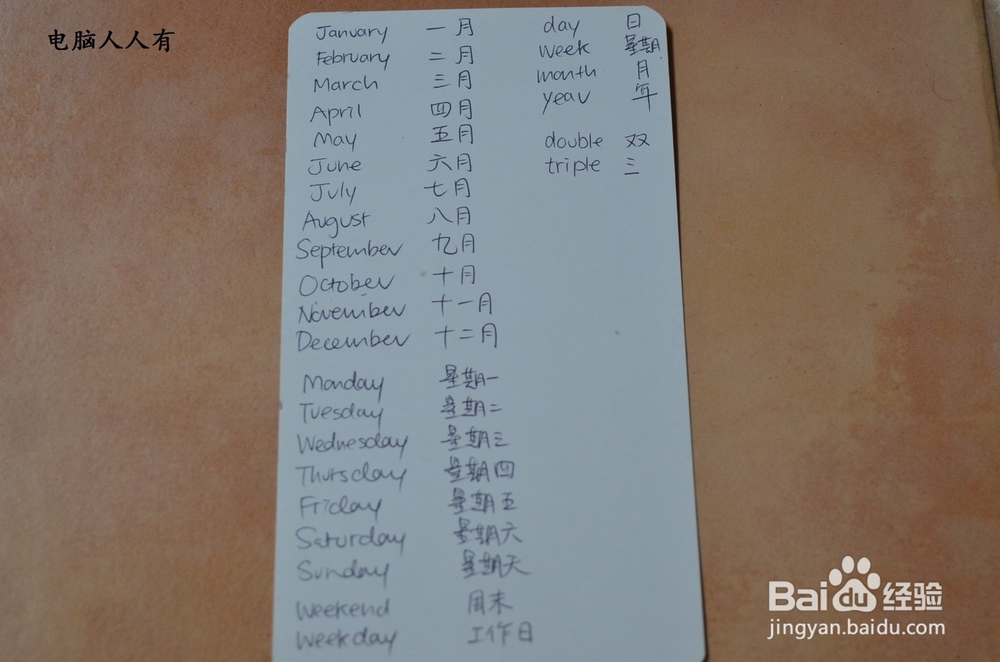 电脑人人有
January 一月
February 二月
March 三月
April 四月
May 五月
June 六月
July 七月
August 八月
September 九月
October 十月
November 十一月
December 十二月
Monday 星期一
Tuesday 星期二
Wednesday 星期三
Thursday 星期四
Friday 星期五
Saturday 星期六
Sunday 星期天
Weekend 周末
Weekday 工作日
day 日
week 星期
month 月
year 年
double 双
triple 三
Baidu 经验
jingyan.baidu.com